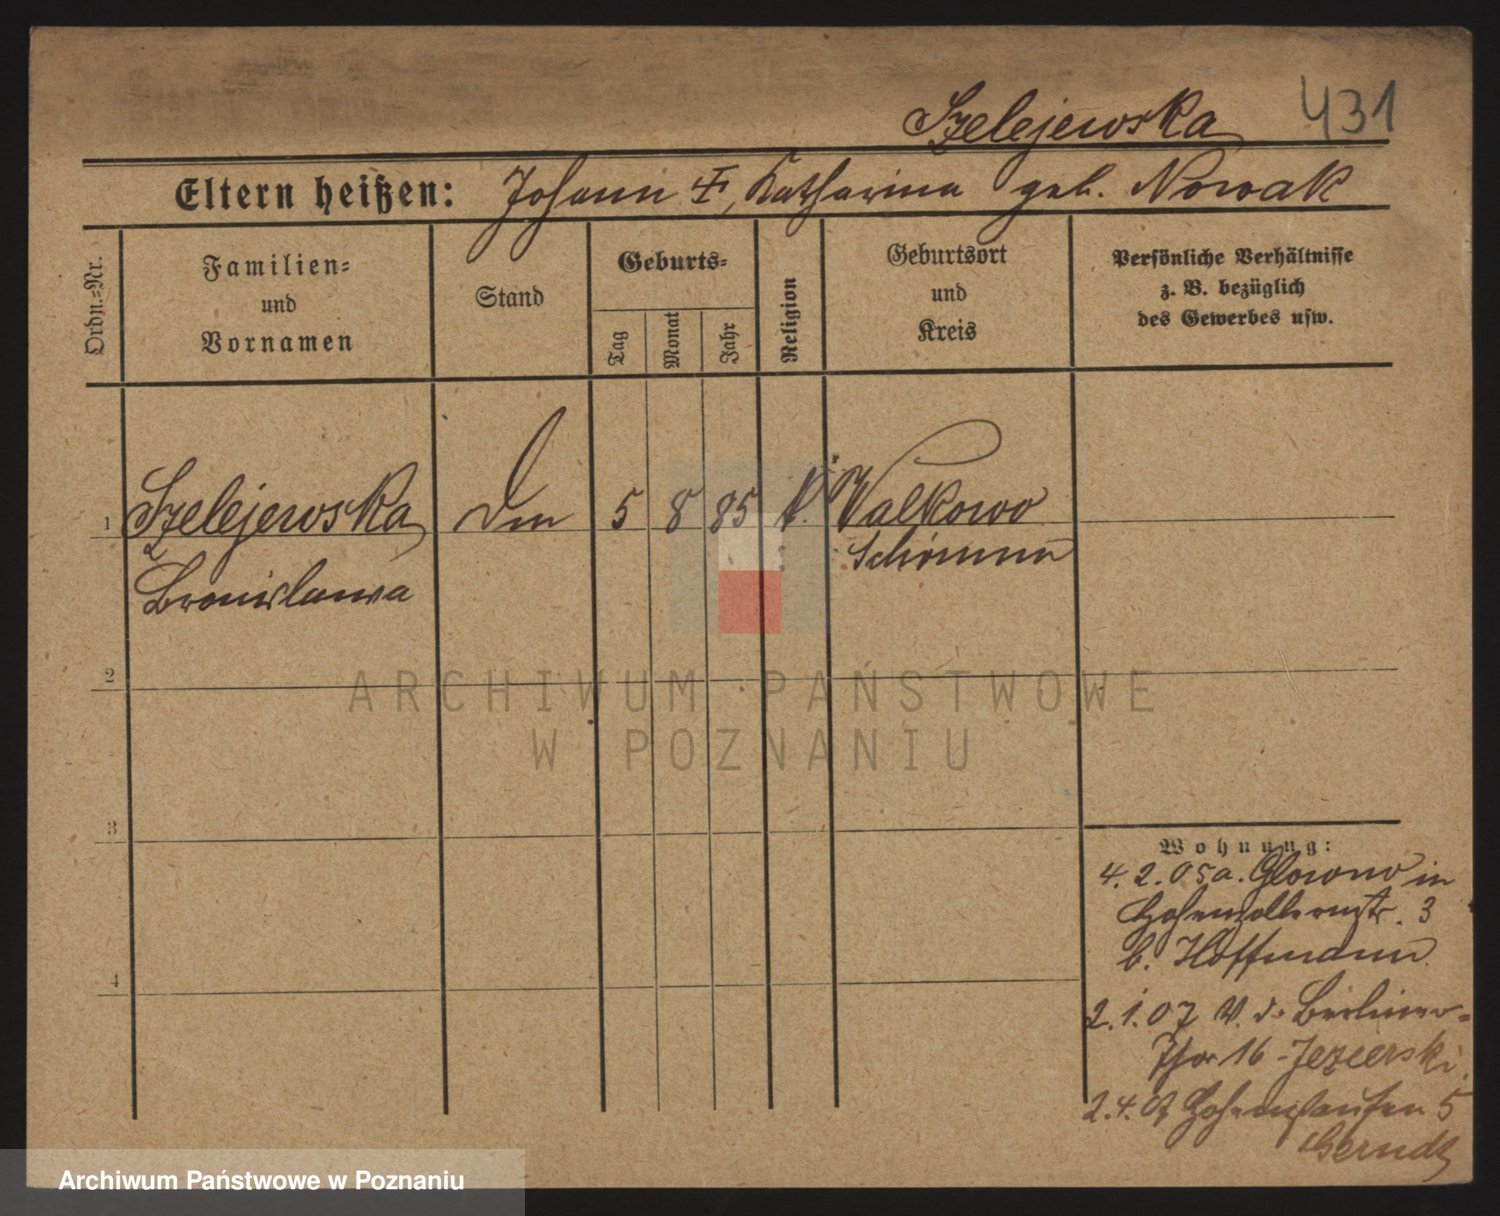 Szelejewska 431
Eltern heißen: Johann †, Katharina geb. Nowak
Ordn.-Nr.
Familien-
und
Vornamen
Stand
Geburts-
Tag
Monat
Jahr
Religion
Geburtsort
und
Kreis
Persönliche Verhältnisse
z. B. bezüglich
des Gewerbes usw.
1 Szelejewska 5 8 85 k. Walkowo
Bronislawa
2
3
4
Wohnung:
4. 2. 05 a. Glowno in
Hohenzollernstr. 3
b. Hoffmann
2. 1. 07 V. d. Berliner-
Thor 16 - Jezierski
2. 4. 07 Hohenstaufen 5
ARCHIWUM PAŃSTWOWE
W POZNANIU
Archiwum Państwowe w Poznaniu